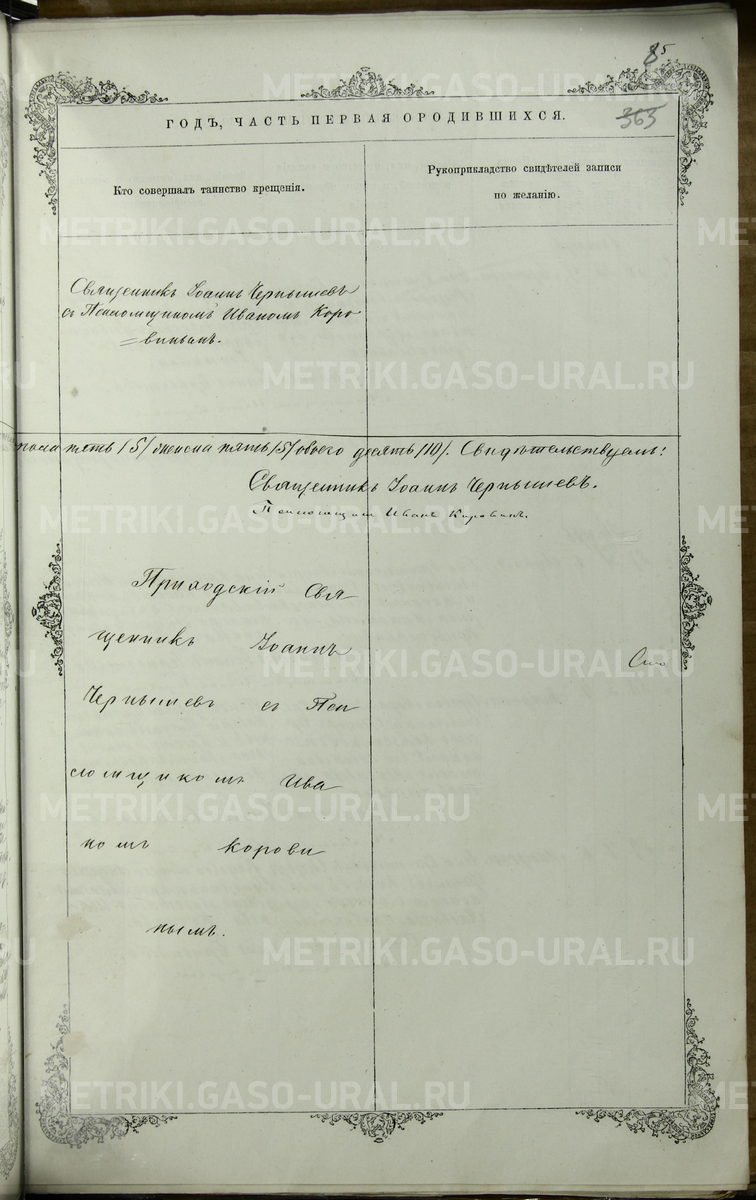 85
ГОДЪ, ЧАСТЬ ПЕРВАЯ ОРОДИВШИХСЯ.
363
Кто совершалъ таинство крещенія.
Рукоприкладство свидѣтелей записи
по желанію.
Священникъ Іоаннъ Чернышевъ
съ Псаломщикомъ Иваномъ Коро
=винымъ.
пола пять /5/ женска пять /5/ обоего десять /10/. Свидѣтельствуемъ:
Священникъ Іоаннъ Чернышевъ.
Псаломщикъ Иванъ Коровинъ.
Приходскій Свя
щенникъ Іоаннъ
Чернышевъ съ Пса
ломщикомъ Ива
номъ Корови
нымъ.
METRIKI.GASO-URAL.RU